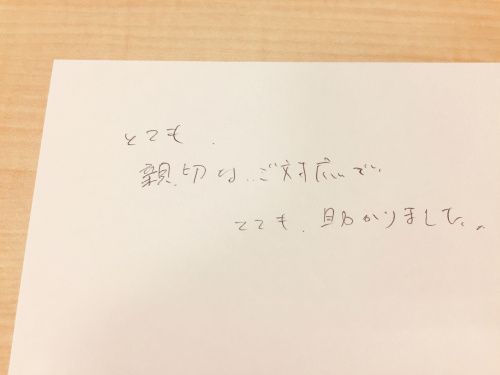 とても
親切な ご対応で、
とても、助かりました。